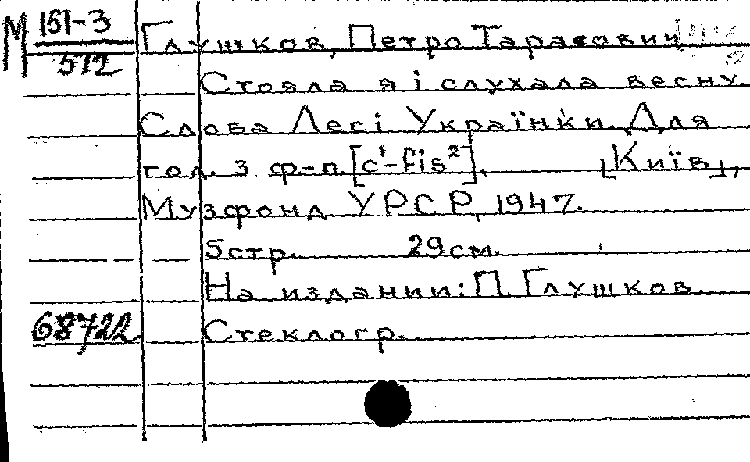 М 151-3
572
Глушков, Петро Тарасович
Стояла я і слухала весну.
Слова Лесі Українки. Для
гол. з ф-п. [c¹-fis²].
[Київ],
Музфонд УРСР, 1947.
5 стр. 29 см.
На издании: П. Глушков.
68722 Стеклогр.